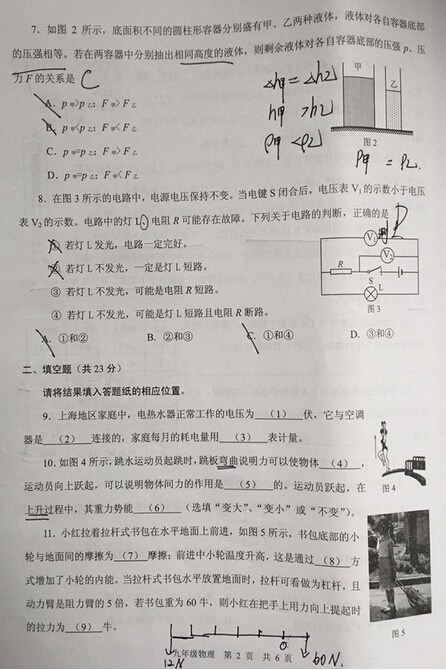 7. 如图 2 所示，底面积不同的圆柱形容器分别盛有甲、乙两种液体，液体对各自容器底部
的压强相等。若在两容器中分别抽出相同高度的液体，则剩余液体对各自容器底部的压强 p、压
力 F 的关系是 C
A. p甲>p乙；F甲>F乙
B. p甲<p乙；F甲<F乙
C. p甲=p乙；F甲>F乙
D. p甲=p乙；F甲<F乙
Δh甲 = Δh乙
h甲 > h乙
ρ甲 < ρ乙
P甲 = P乙
甲
乙
图 2
8. 在图 3 所示的电路中，电源电压保持不变。当电键 S 闭合后，电压表 V₁ 的示数小于电压
表 V₂ 的示数。电路中的灯 L、电阻 R 可能存在故障。下列关于电路的判断，正确的是 D
① 若灯 L 发光，电路一定完好。
② 若灯 L 不发光，一定是灯 L 短路。
③ 若灯 L 不发光，可能是电阻 R 短路。
④ 若灯 L 不发光，可能是灯 L 短路且电阻 R 断路。
V₁
V₂
R
S
L
图 3
A. ①和② B. ②和③ C. ①和④ D. ③和④
二、填空题（共 23 分）
请将结果填入答题纸的相应位置。
9. 上海地区家庭中，电热水器正常工作的电压为 （1） 伏，它与空调
器是 （2） 连接的，家庭每月的耗电量用 （3） 表计量。
10. 如图 4 所示，跳水运动员起跳时，跳板弯曲说明力可以使物体 （4） ，
运动员向上跃起，可以说明物体间力的作用是 （5） 的。运动员跃起，在
上升过程中，其重力势能 （6） （选填“变大”、“变小”或“不变”）。
图 4
11. 小红拉着拉杆式书包在水平地面上前进，如图 5 所示，书包底部的小
轮与地面间的摩擦为 （7） 摩擦；前进中小轮温度升高，这是通过 （8） 方
式增加了小轮的内能。当拉杆式书包水平放置地面时，拉杆可看做为杠杆，且
动力臂是阻力臂的 5 倍，若书包重为 60 牛，则小红在把手上用力向上提起时
的拉力为 （9） 牛。
图 5
九年级物理 第 2 页 共 6 页
12N
60N.